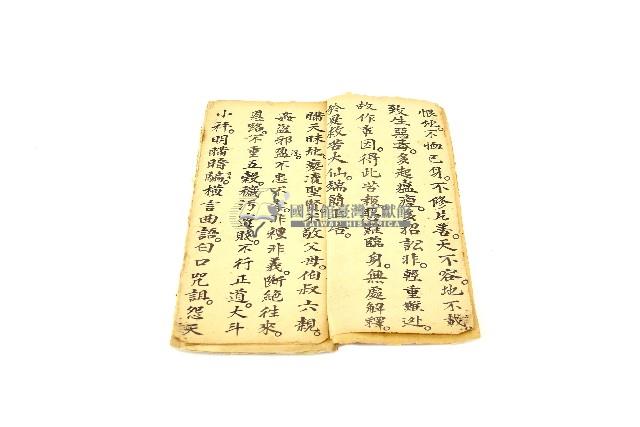 恨地。不恤己身。不修片善。天不容。地不載。
致生惡毒。多起瘟疫。招訟非輕。重難处。
故作事因。得此苦報。臨身。無處解釋。
於是救苦大仙。隨
瞞天昧地。褻瀆聖賢。不敬父母。伯叔六親。
姦盜邪盈。不忠不。非禮非義。斷絕往來。
恩路。不重五穀。穢污遺賤。不行正道。大斗
小秤。明瞞暗騙。橫言曲語。白口咒詛。怨天
國史館臺灣文獻館
TAIWAN HISTORICA